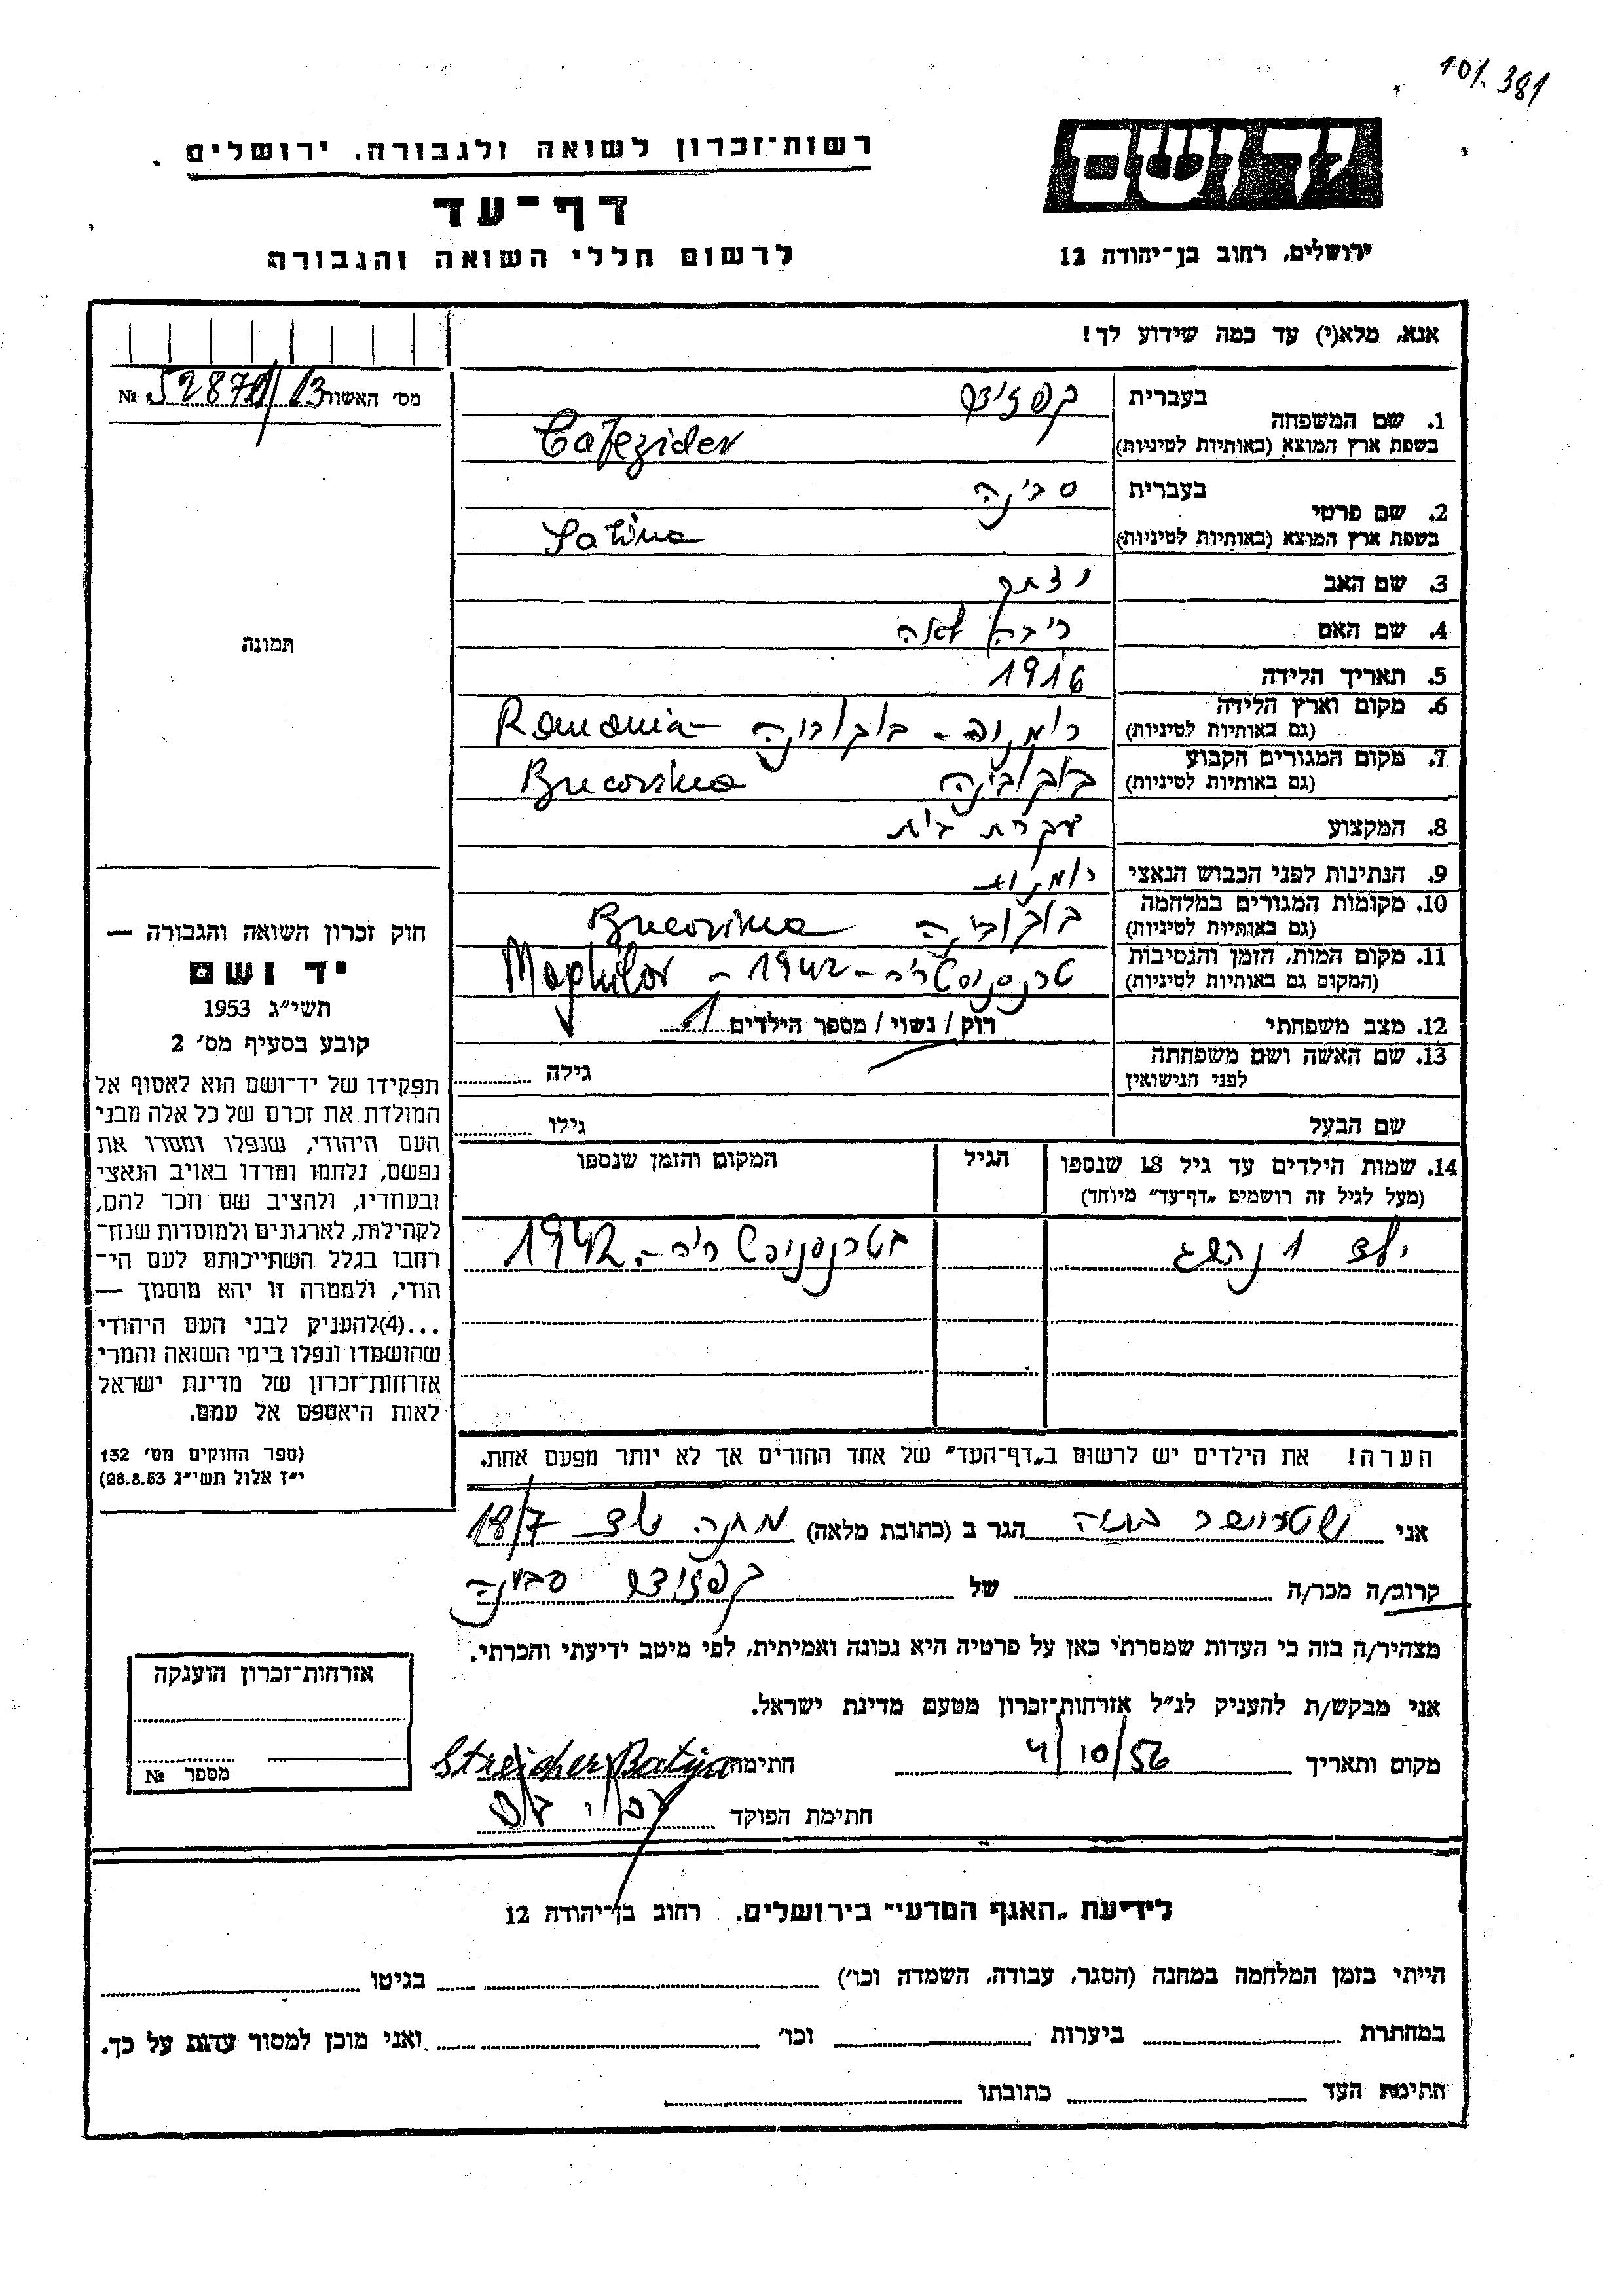 10/. 381
רשות־זכרון לשואה ולגבורה, ירושלים
יד ושם
דף־עד
לרשום חללי השואה והגבורה
ירושלים, רחוב בן־יהודה 12
אנא, מלא(י) עד כמה שידוע לך!
מס׳ האשור 13/52871 №
1. שם המשפחה
בעברית קפזידר
בשפת ארץ המוצא (באותיות לטיניות) Cafezider
2. שם פרטי
בעברית סבינה
בשפת ארץ המוצא (באותיות לטיניות) Sabina
3. שם האב יצחק
4. שם האם ריבה לאה
5. תאריך הלידה 1916
6. מקום וארץ הלידה
(גם באותיות לטיניות) רומניה - בוקובינה Romania
7. מקום המגורים הקבוע
(גם באותיות לטיניות) בוקובינה Bucovina
8. המקצוע עקרת בית
9. הנתינות לפני הכבוש הנאצי רומנית
10. מקומות המגורים במלחמה
(גם באותיות לטיניות) בוקובינה Bucovina
11. מקום המות, הזמן והנסיבות
(המקום גם באותיות לטיניות) טרנסניסטריה - 1942 - Moghilov
12. מצב משפחתי רוק / נשוי / מספר הילדים 1
13. שם האשה ושם משפחתה
לפני הנישואין
גילה
שם הבעל
גילו
14. שמות הילדים עד גיל 18 שנספו
(מעל לגיל זה רושמים „דף־עד״ מיוחד)
הגיל
המקום והזמן שנספו
ילד 1 נהרג
בטרנסניסטריה - 1942
הערה! את הילדים יש לרשום ב„דף־העד״ של אחד ההורים אך לא יותר מפעם אחת.
תמונה
חוק זכרון השואה והגבורה —
יד ושם
תשי״ג 1953
קובע בסעיף מס׳ 2
תפקידו של יד־ושם הוא לאסוף אל
המולדת את זכרם של כל אלה מבני
העם היהודי, שנפלו ומסרו את
נפשם, נלחמו ומרדו באויב הנאצי
ובעוזריו, ולהציב שם וזכר להם,
לקהילות, לארגונים ולמוסדות שנח־
רחבו בגלל השתייכותם לעם הי־
הודי, ולמטרה זו יהא מוסמך —
...(4)להעניק לבני העם היהודי
שהושמדו ונפלו בימי השואה והמרי
אזרחות־זכרון של מדינת ישראל
לאות היאספם אל עמם.
(ספר החוקים מס׳ 132
י״ז אלול תשי״ג 28.8.53)
אני שטרייכר בתיה הגר ב (כתובת מלאה) 18/7
קרוב/ה מכר/ה של קפזידר סבינה
מצהיר/ה בזה כי העדות שמסרתי כאן על פרטיה היא נכונה ואמיתית, לפי מיטב ידיעתי והכרתי.
אני מבקש/ת להעניק לנ״ל אזרחות־זכרון מטעם מדינת ישראל.
מקום ותאריך 4/10/56 חתימה Streicher Batija
חתימת הפוקד
אזרחות־זכרון הוענקה
מספר №
לידיעת „האגף המדעי״ בירושלים, רחוב בן־יהודה 12
הייתי בזמן המלחמה במחנה (הסגר, עבודה, השמדה וכו׳) בגיטו
במחתרת ביערות וכו׳ ואני מוכן למסור עדות על כך.
חתימת העד כתובתו